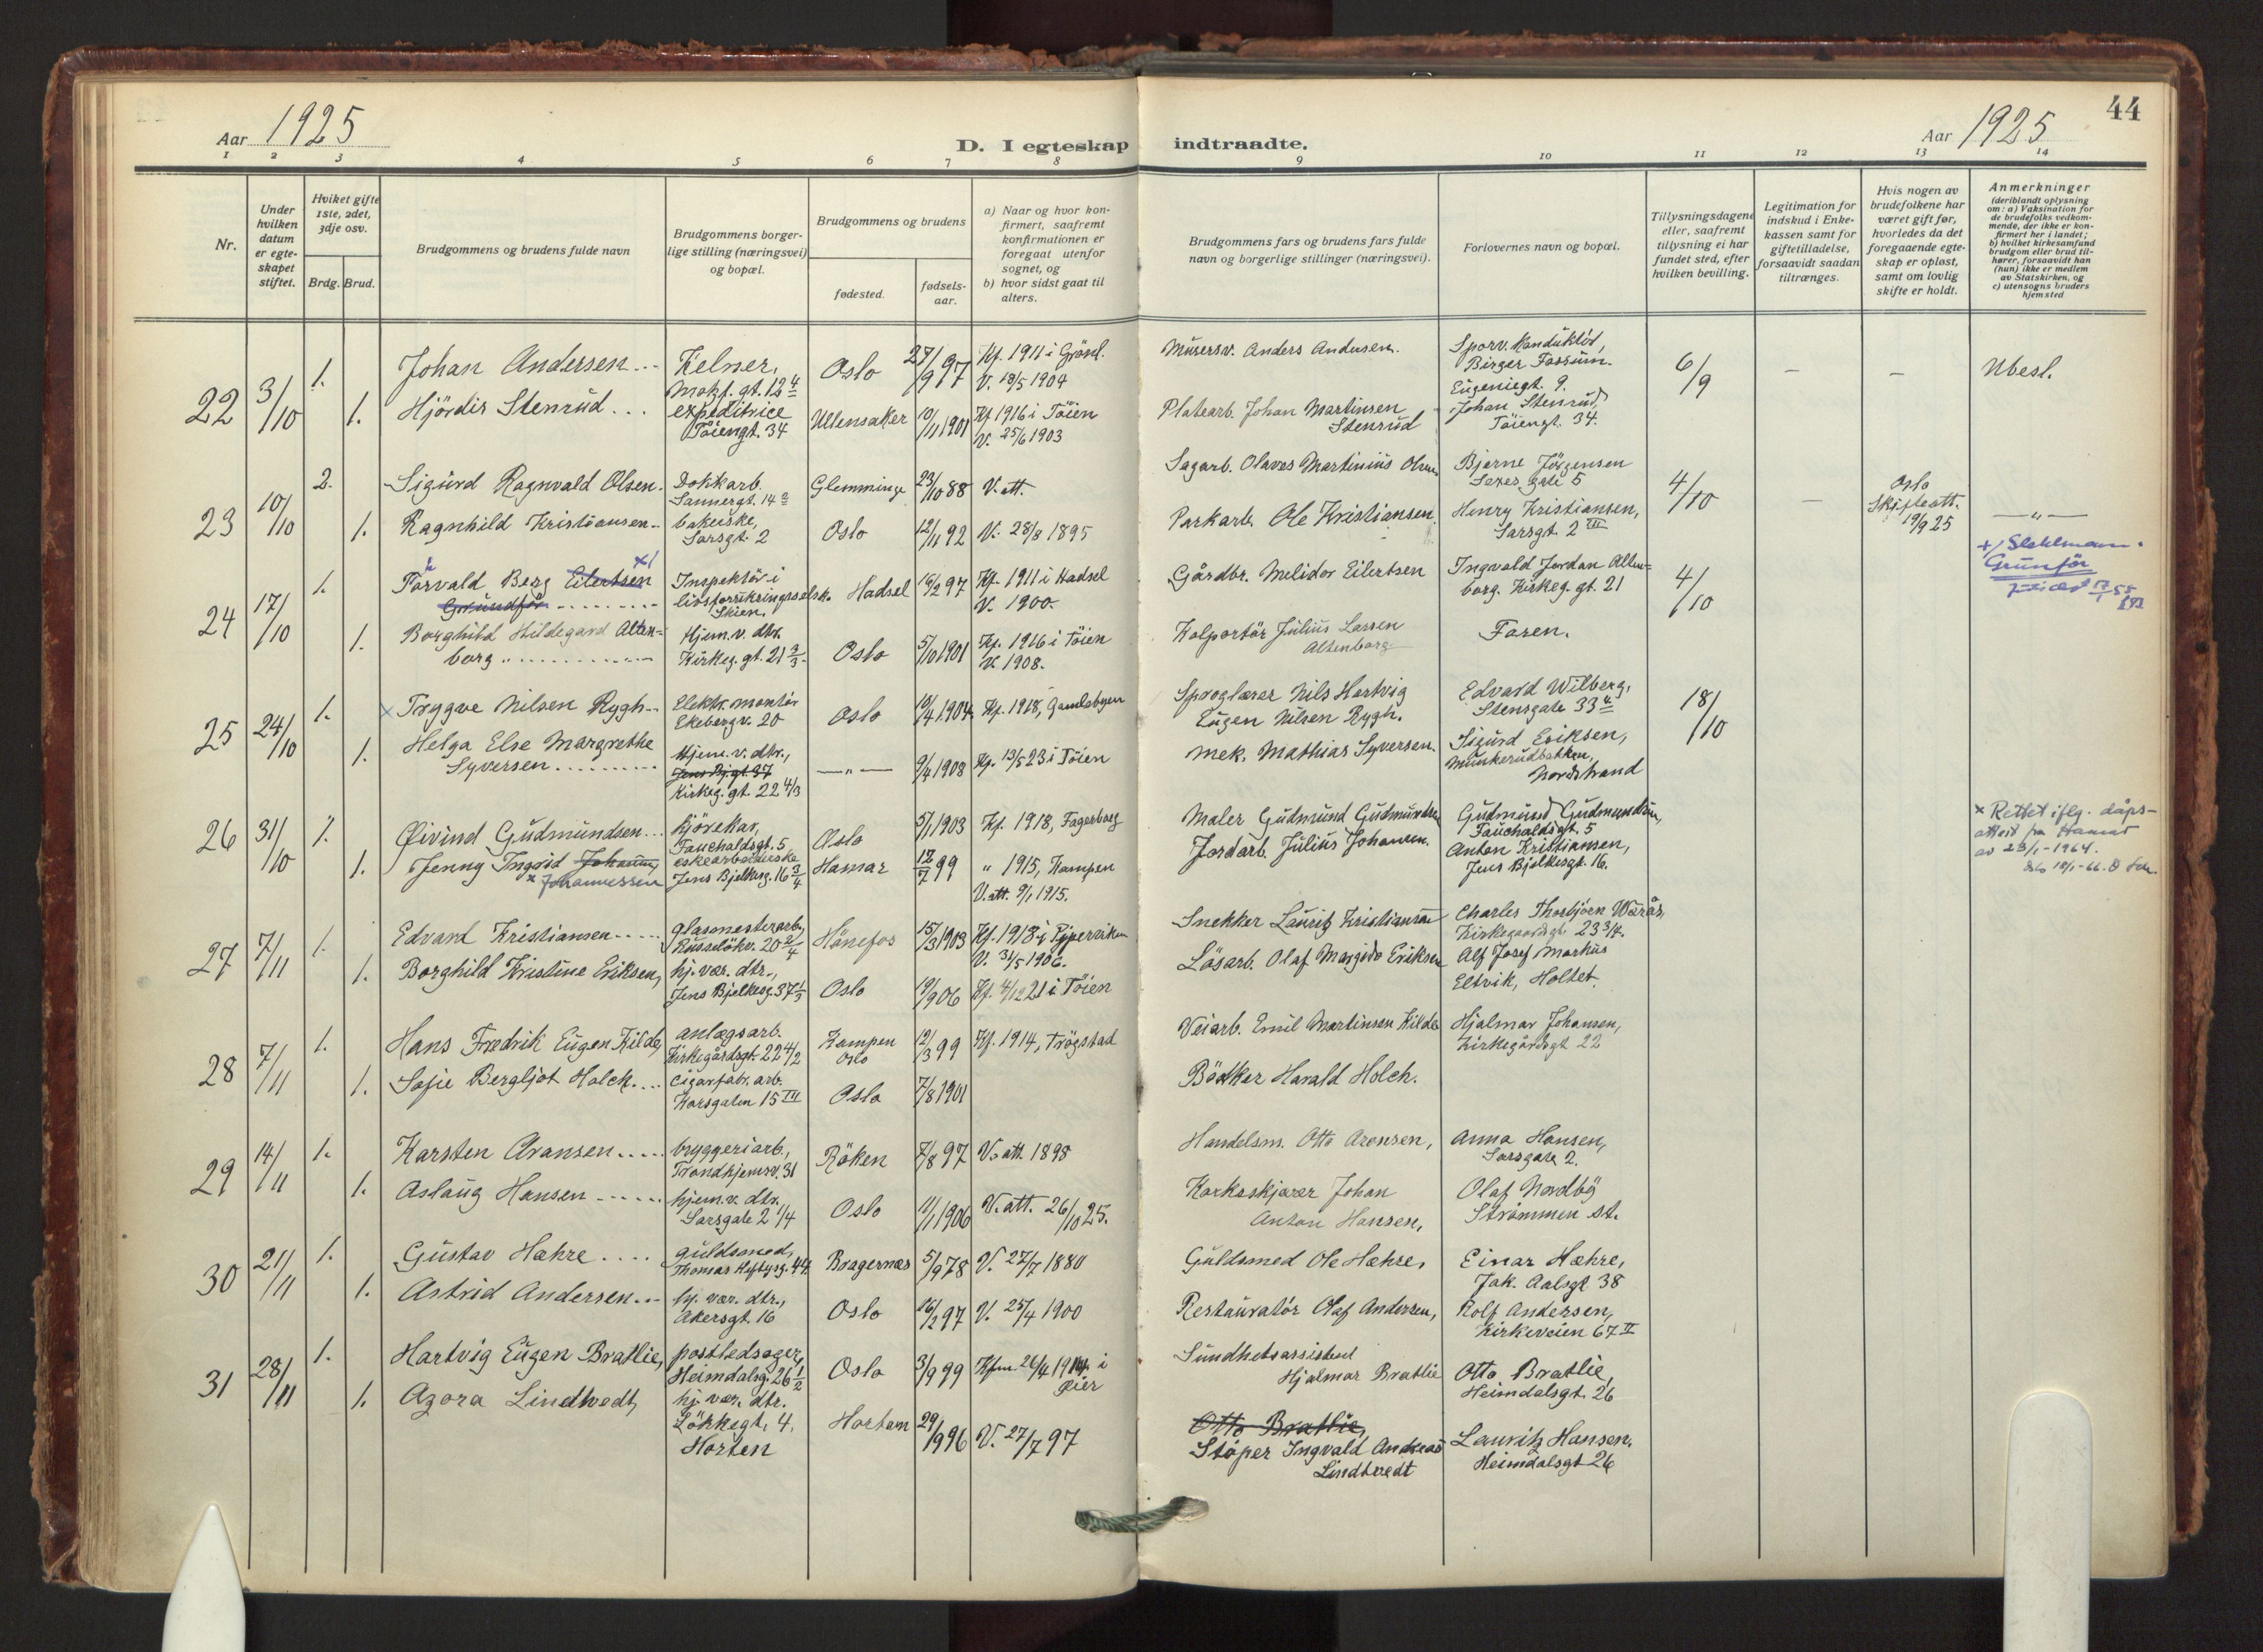 Aar 1925
D. I egteskap indtraadte.
Aar 1925
44
1 2 3 4 5 6 7 8 9 10 11 12 13 14
Nr.
Under hvilken datum er egte-skapet stiftet.
Hviket gifte 1ste, 2det, 3dje osv.
Brdg. Brud.
Brudgommens og brudens fulde navn
Brudgommens borger-lige stilling (næringsvei) og bopæl.
Brudgommens og brudens
fødested.
fødsels-aar.
a) Naar og hvor kon-firmert, saafremt konfirmationen er foregaat utenfor sognet, og
b) hvor sidst gaat til alters.
Brudgommens fars og brudens fars fulde navn og borgerlige stillinger (næringsvei).
Forlovernes navn og bopæl.
Tillysningsdagene eller, saafremt tillysning ei har fundet sted, efter hvilken bevilling.
Legitimation for indskud i Enke-kassen samt for giftetilladelse, forsaavidt saadan tiltrænges.
Hvis nogen av brudefolkene har været gift før, hvorledes da det foregaaende egte-skap er opløst, samt om lovlig skifte er holdt.
Anmerkninger
(deriblandt oplysning om: a) Vaksination for de brudefolks vedkom-mende, der ikke er kon-firmert her i landet; b) hvilket kirkesamfund brudgom eller brud til-hører, forsaavidt han (hun) ikke er medlem av Statskirken, og c) utensogns bruders hjemsted
22 3/10 1. Johan Andersen... Kelner, Oslo 27/9 97 Kf. 1911 i Grönl.
V. 18/5 1904
Mursv. Anders Andersen. Sporv. Konduktör, Birger Fossum. Eugeniegt. 9. 6/9 — — Ubesl.
1. Hjördis Stenrud... expeditrice Töiengt. 34 Ullensaker 10/11 1901 Kf 1916 i Töien
V. 25/6 1903
Platearb. Johan Martinsen Stenrud Johan Stenrud, Töiengt. 34.
23 10/10 2. Sigurd Ragnvald Olsen. Dokkarb. Sannergt. 14 Glemminge 23/10 88 V. att.
Sagarb. Olaves Martinius Olsen Bjarne Jörgensen gate 5 4/10 — Oslo Skifteatt. 19/9 25 — " —
1. Ragnhild Kristiansen bakerske, Sarsgt. 2 Oslo 12/11 92 V. 28/8 1895
Parkarb. Ole Kristiansen. Henry Kristiansen, Sarsgt. 2 III
24 17/10 1. Torvald Berg Eilertsen x) Inspektör i livsforsikringsselsk. Skien. Hadsel 16/2 97 Kf. 1911 i Hadsel
V. 1900.
Gårdbr. Melidor Eilertsen Ingvald Jordan Alten-borg. Kirkeg. gt. 21 4/10
1. Borghild Hildegard Alten-borg Hjem. v. dtr. Kirkeg. gt. 21 2/3 Oslo 5/10 1901 Kf. 1916 i Töien
V. 1908.
Kolportör Julius Larsen Altenborg Faren.
25 24/10 1. x Trygve Nilsen Rygh Elektr. montör Ekebergv. 20 Oslo 10/4 1904 Kf. 1918, Gamlebyen
Sproglærer Nils Hartvig Eugen Nilsen Rygh. Edvard Wilberg, Stensgate 33 18/10
1. Helga Else Margrethe Syversen Hjem. v. dtr., Jens Bj. gt. 37 Kirkeg. gt. 22 4/3 — " — 9/4 1908 Kf. 13/5 23 i Töien
Mek. Mathias Syversen. Sigurd Eriksen, Munkerudbakken, Nordstrand
26 31/10 1. Øivind Gudmundsen... kjörekar, Fauchaldsgt. 5 Oslo 5/1 1903 Kf. 1918, Fagerborg
Maler Gudmund Gudmundsen Gudmund Gudmundsen, Fauchaldsgt. 5
x Rettet iflg. dåps-attest fra Hamar av 23/1-1964.
1. Jenny Ingrid Johansen, x Johannessen eskearbeiderske Jens Bjelkesg. 16 3/4 Hamar 12/7 99 " 1915, Kampen
V. att. 9/1 1915.
Jordarb. Julius Johansen. Anton Kristiansen, Jens Bjelkesgt. 16.
27 7/11 1. Edvard Kristiansen glasmesterarb., Russelökv. 20 2/4 Hönefos 15/3 1903 Kf. 1918 i Piperviken
V. 31/5 1906.
Snekker Lauritz Kristiansen Charles Thorbjörn Wærås, Kirkegaardsgt. 23 3/4.
1. Borghild Kristine Eriksen, hj. vær. dtr., Jens Bjelkesg. 37 1/3 Oslo 19/9 06 Kf. 4/12 21 i Töien
Lösarb. Olaf Margido Eriksen Alf Josef Markus Eltvik, Holtet.
28 7/11 1. Hans Fredrik Eugen Kilde, anlægsarb. Kirkegårdsgt. 22 4/2 Kampen Oslo 12/3 99 Kf. 1914, Trögstad
Veiarb. Emil Martinsen Kilde Hjalmar Johansen, Kirkegårdsgt 22
1. Sofie Bergljot Holch.... Cigarfabr. arb. Korsgaten 15 III Oslo 7/8 1901
Bödker Harald Holch.
29 14/11 1. Karsten Aronsen..... bryggeriarb., Trondhjemsv. 31 Röken 7/8 97 V. att. 1898
Handelsm. Otto Aronsen, Anna Hansen, Sarsgate 2.
1. Aslaug Hansen hjem. v. dtr., Sarsgate 2 1/4 Oslo 11/1 1906 V. att. 26/10 25.
Korkskjærer Johan Anton Hansen, Olaf Nordby Strömmen st.
30 21/11 1. Gustav Hæhre.... guldsmed, Thomas Heftyesg. 44 Bragernæs 5/9 78 V. 27/7 1880
Guldsmed Ole Hæhre, Einar Hæhre, Jak. Aalsgt 38
1. Astrid Andersen... hj. vær. dtr., Akersgt. 16 Oslo 16/2 97 V. 25/4 1900
Restauratör Olaf Andersen, Rolf Andersen, Kirkeveien 67 II
31 28/11 1. Hartvig Eugen Bratlie, postledsager, Heimdalsg. 26 1/2 Oslo 3/9 99 Kfm. 26/4 1914 i
Sundhetsassistent Hjalmar Bratlie Otto Bratlie, Heimdalsgt. 26
1. Azora Lindtvedt, hj. vær. dtr. Lökkegt. 4, Horten Horten 29/1 96 V. 27/7 97
Otto Bratlie,
Stöper Ingvald Andreas Lindtvedt Lauritz Hansen. Heimdalsgt 26